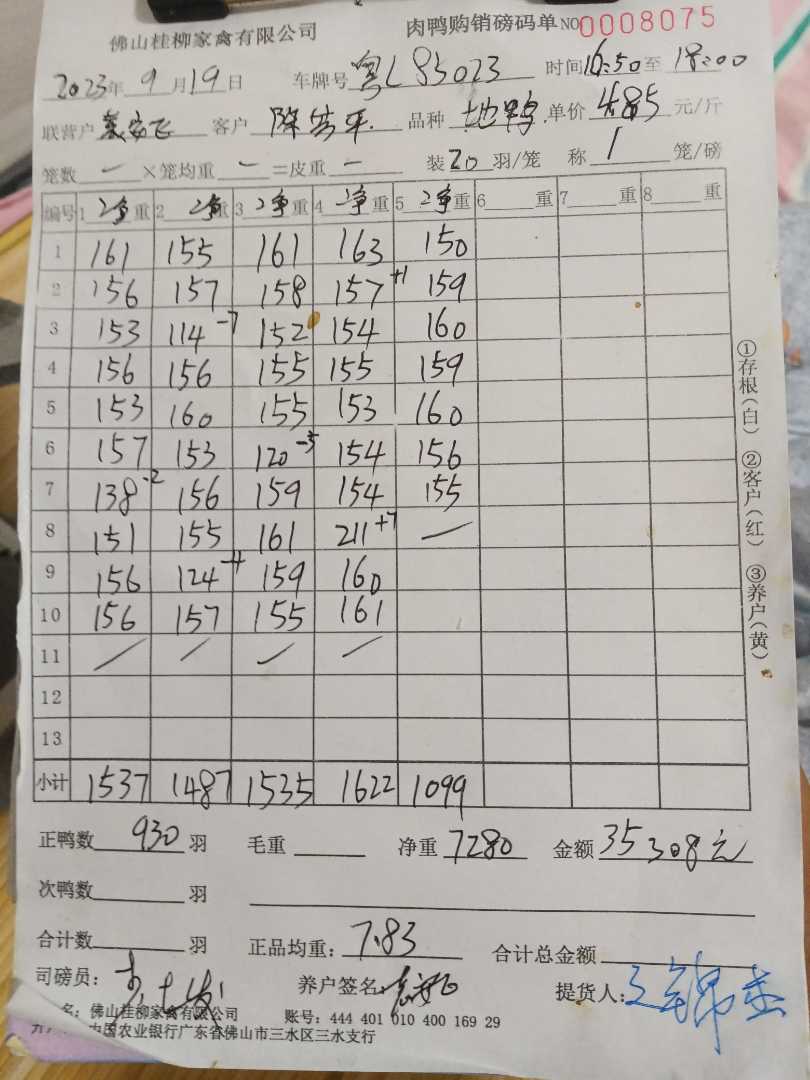 佛山桂柳家禽有限公司 肉鸭购销磅码单 NO 0008075
2023年9月19日 车牌号 粤L 85023 时间 16:50 至 18:00
联营户 客户 品种 地鸭 单价 4.85 元/斤
笼数 — ×笼均重 — =皮重 — 装 20 羽/笼 称 1 笼/磅
编号 1 净 重 2 净 重 3 净 重 4 净 重 5 净 重 6 重 7 重 8 重
1 161 155 161 163 150
2 156 157 158 157 +1 159
3 153 114 -7 152 154 160
4 156 156 155 155 159
5 153 160 155 153 160
6 157 153 120 -5 154 156
7 138 -2 156 159 154 155
8 151 155 161 211 +7 —
9 156 124 159 160
10 156 157 155 161
11 — — — —
12
13
小计 1537 1487 1535 1622 1099
正鸭数 930 羽 毛重 净重 7280 金额 35308元
次鸭数 羽
合计数 羽 正品均重: 7.83 合计总金额
司磅员: 养户签名: 提货人:
名: 佛山桂柳家禽有限公司 账号: 444 401 010 400 169 29
中国农业银行广东省佛山市三水区三水支行
①存根(白) ②客户(红) ③养户(黄)